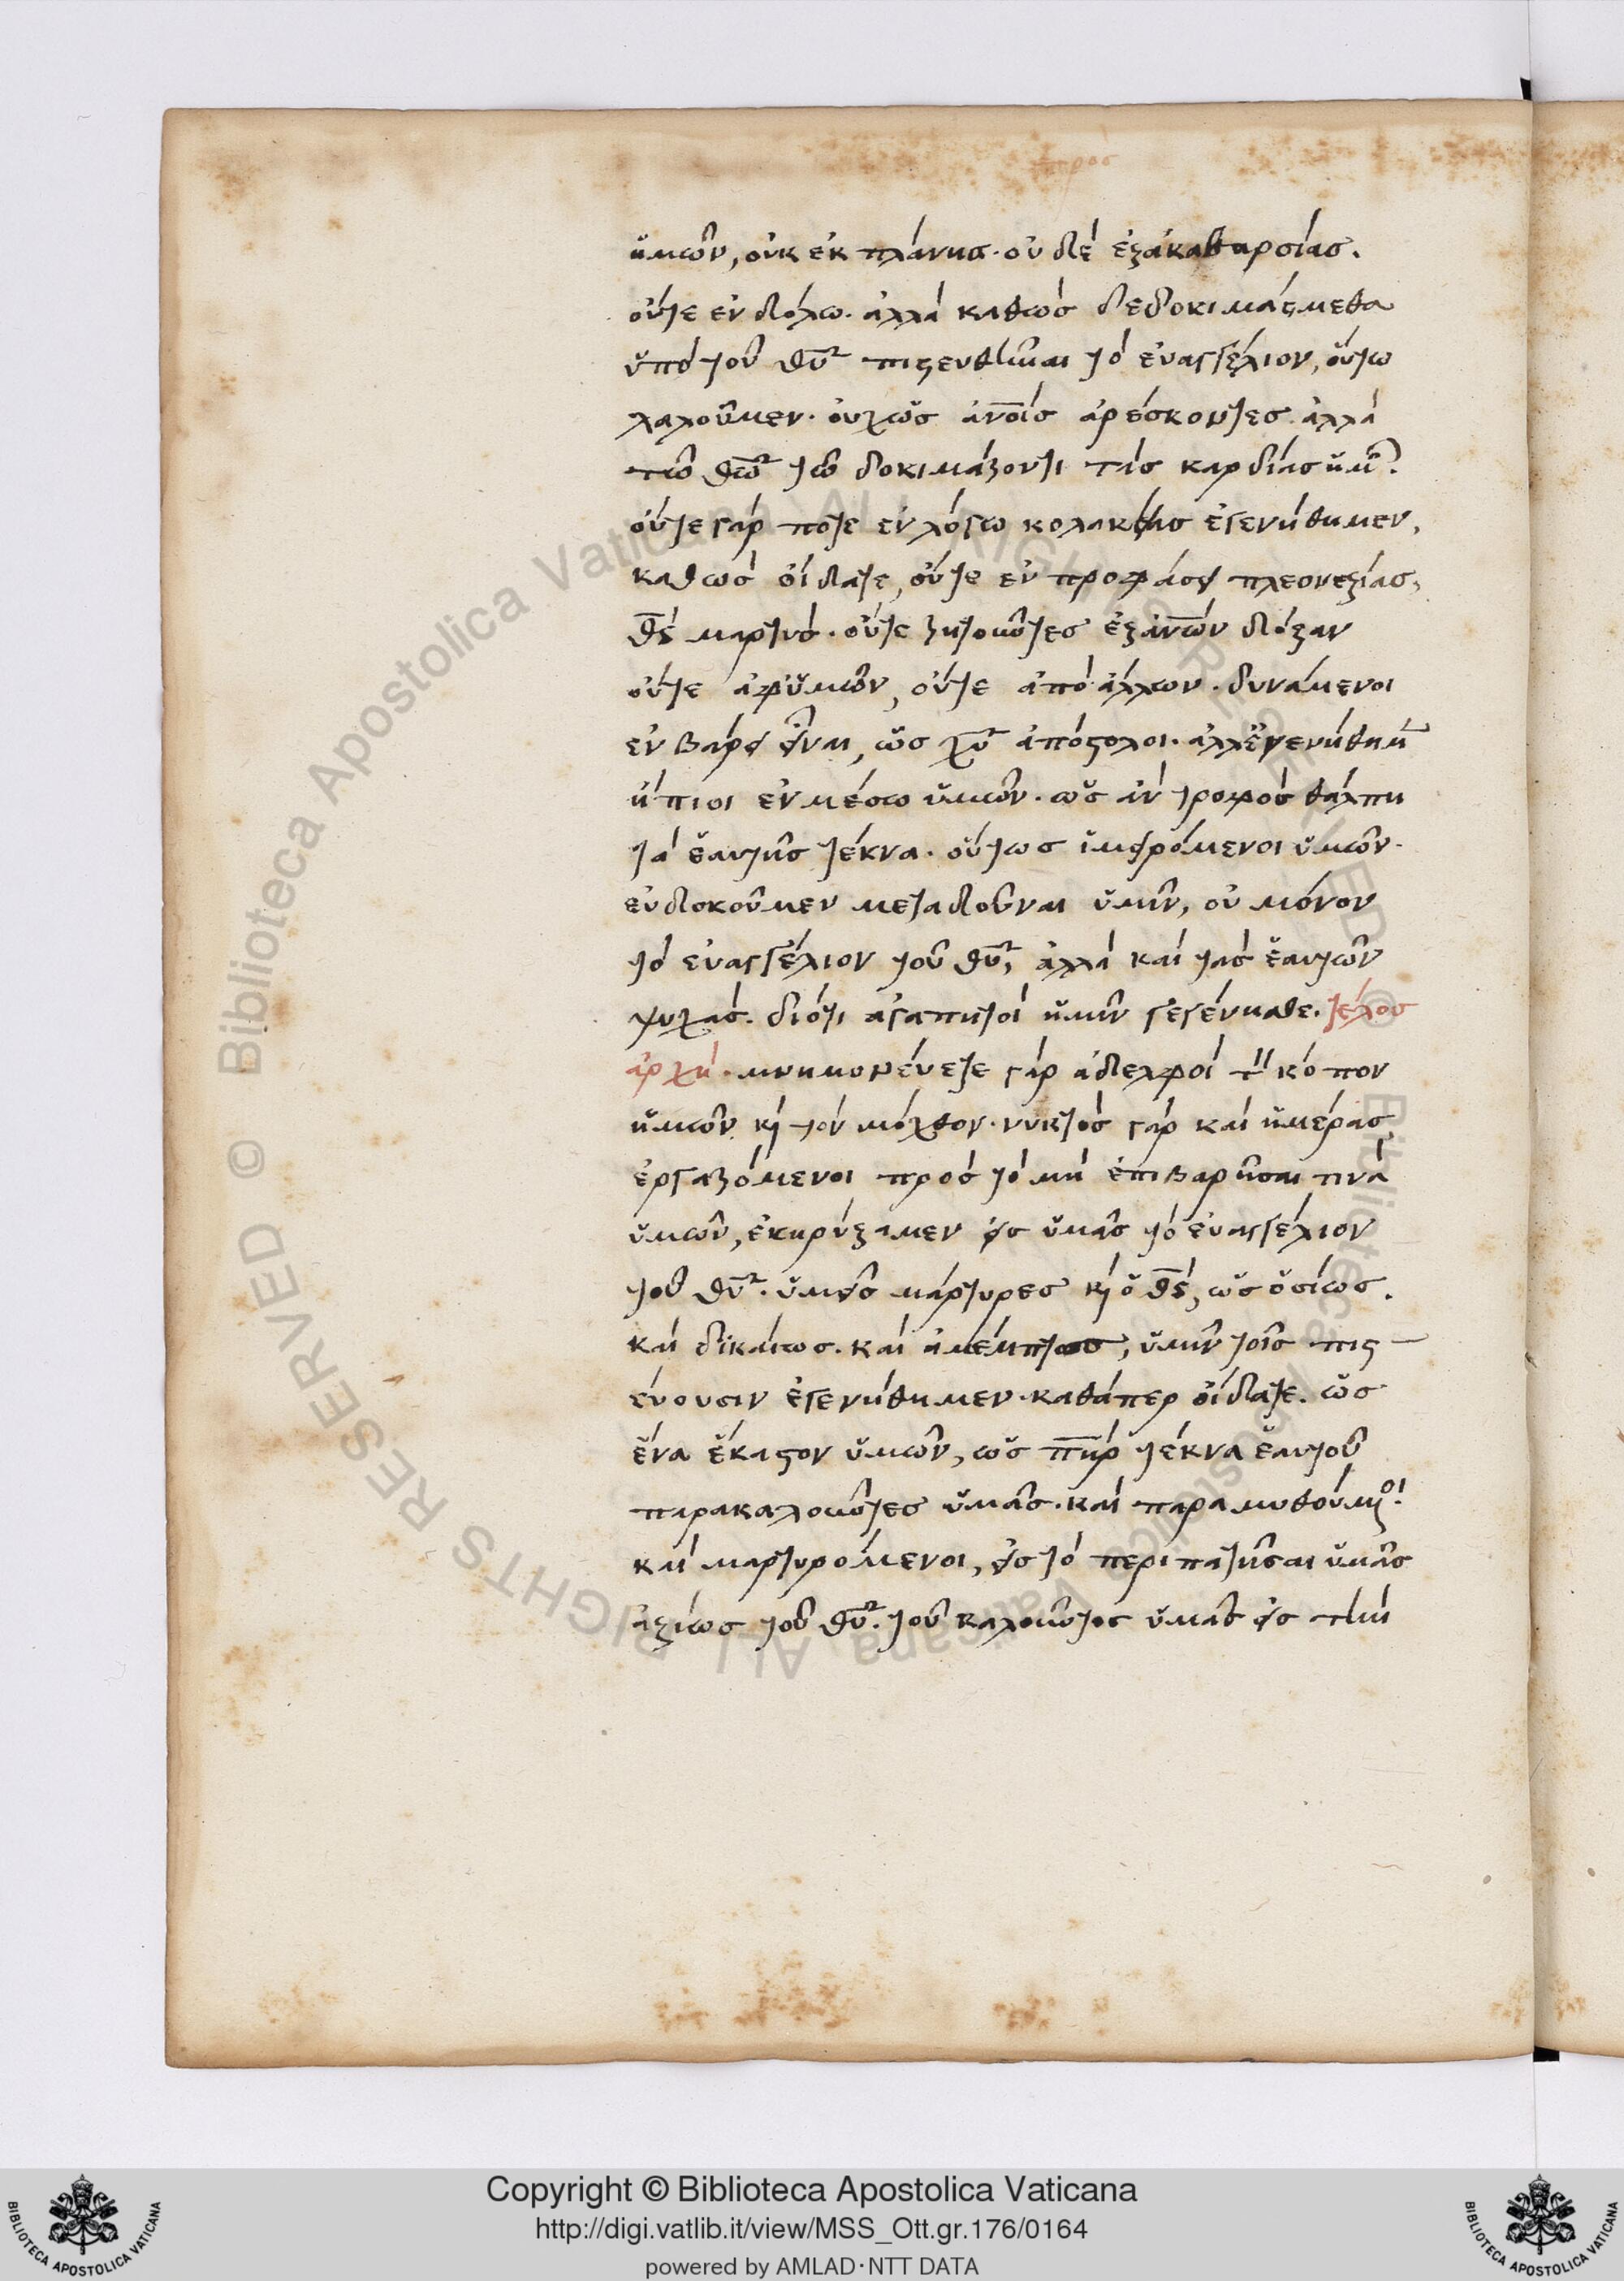 ἡμῶν, οὐκ ἐκ πλάνης. οὐδὲ ἐξ ἀκαθαρσίας.
οὔτε ἐν δόλω. ἀλλὰ καθὼς δεδοκιμάσμεθα
ὑπὸ τοῦ θυ πιστευθῆναι τὸ εὐαγγέλιον, οὕτω
λαλοῦμεν. οὐχ ὡς ἀνοις ἀρέσκοντες. ἀλλὰ
τῶ θω τῶ δοκιμάζοντι τὰς καρδίας ἡμ.
οὔτε γάρ ποτε ἐν λόγω κολακείας ἐγενήθημεν,
καθὼς οἴδατε, οὔτε ἐν προφάσει πλεονεξίας,
θς μάρτυς. οὔτε ζητοῦντες ἐξ ἀνων δόξαν
οὔτε ἀφ ὑμῶν, οὔτε ἀπὸ ἄλλων. δυνάμενοι
ἐν βάρει εἶναι, ὡς χυ ἀπόστολοι. ἀλλ ἐγενήθημ
ἤπιοι ἐν μέσω ὑμῶν. ὡς ἂν τροφὸς θάλπη
τὰ ἑαυτῆς τέκνα. οὕτως ἱμειρόμενοι ὑμῶν.
εὐδοκοῦμεν μεταδοῦναι ὑμῖν, οὐ μόνον
τὸ εὐαγγέλιον τοῦ θυ, ἀλλὰ καὶ τὰς ἑαυτῶν
ψυχάς. διότι ἀγαπητοὶ ἡμῖν γεγένησθε. τέλος
ἀρχή. μνημονεύετε γὰρ ἀδελφοὶ τ κόπον
ἡμῶν κ τὸν μόχθον. νυκτὸς γὰρ καὶ ἡμέρας
ἐργαζόμενοι πρὸς τὸ μὴ ἐπιβαρῆσαι τινὰ
ὑμῶν, ἐκηρύξαμεν εἰς ὑμᾶς τὸ εὐαγγέλιον
τοῦ θυ. ὑμεῖς μάρτυρες κ ὁ θς, ὡς ὁσίως.
καὶ δικαίως. καὶ ἀμέμπτως, ὑμῖν τοῖς πισ
εύουσιν ἐγενήθημεν. καθάπερ οἴδατε. ὡς
ἕνα ἕκαστον ὑμῶν, ὡς πηρ τέκνα ἑαυτοῦ
παρακαλοῦντες ὑμᾶς. καὶ παραμυθούμοι
καὶ μαρτυρόμενοι, εἰς τὸ περιπατῆσαι ὑμᾶς
ἀξίως τοῦ θυ. τοῦ καλοῦντος ὑμᾶς εἰς τὴν
Copyright © Biblioteca Apostolica Vaticana
http://digi.vatlib.it/view/MSS_Ott.gr.176/0164
powered by AMLAD·NTT DATA
© Biblioteca Apostolica Vaticana ALL RIGHTS RESERVED
© Biblioteca Apostolica Vaticana ALL RIGHTS RESERVED
BIBLIOTECA APOSTOLICA VATICANA
BIBLIOTECA APOSTOLICA VATICANA